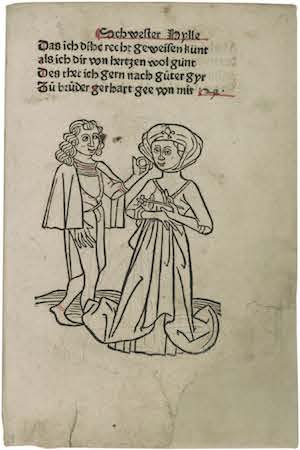 Sachwester Hylle
Das ich dich recht geweisen kunt
als ich dir von hertzen wol gunt
Des thet ich gern nach güter gyr
Zů brůder gerhart gee von mir